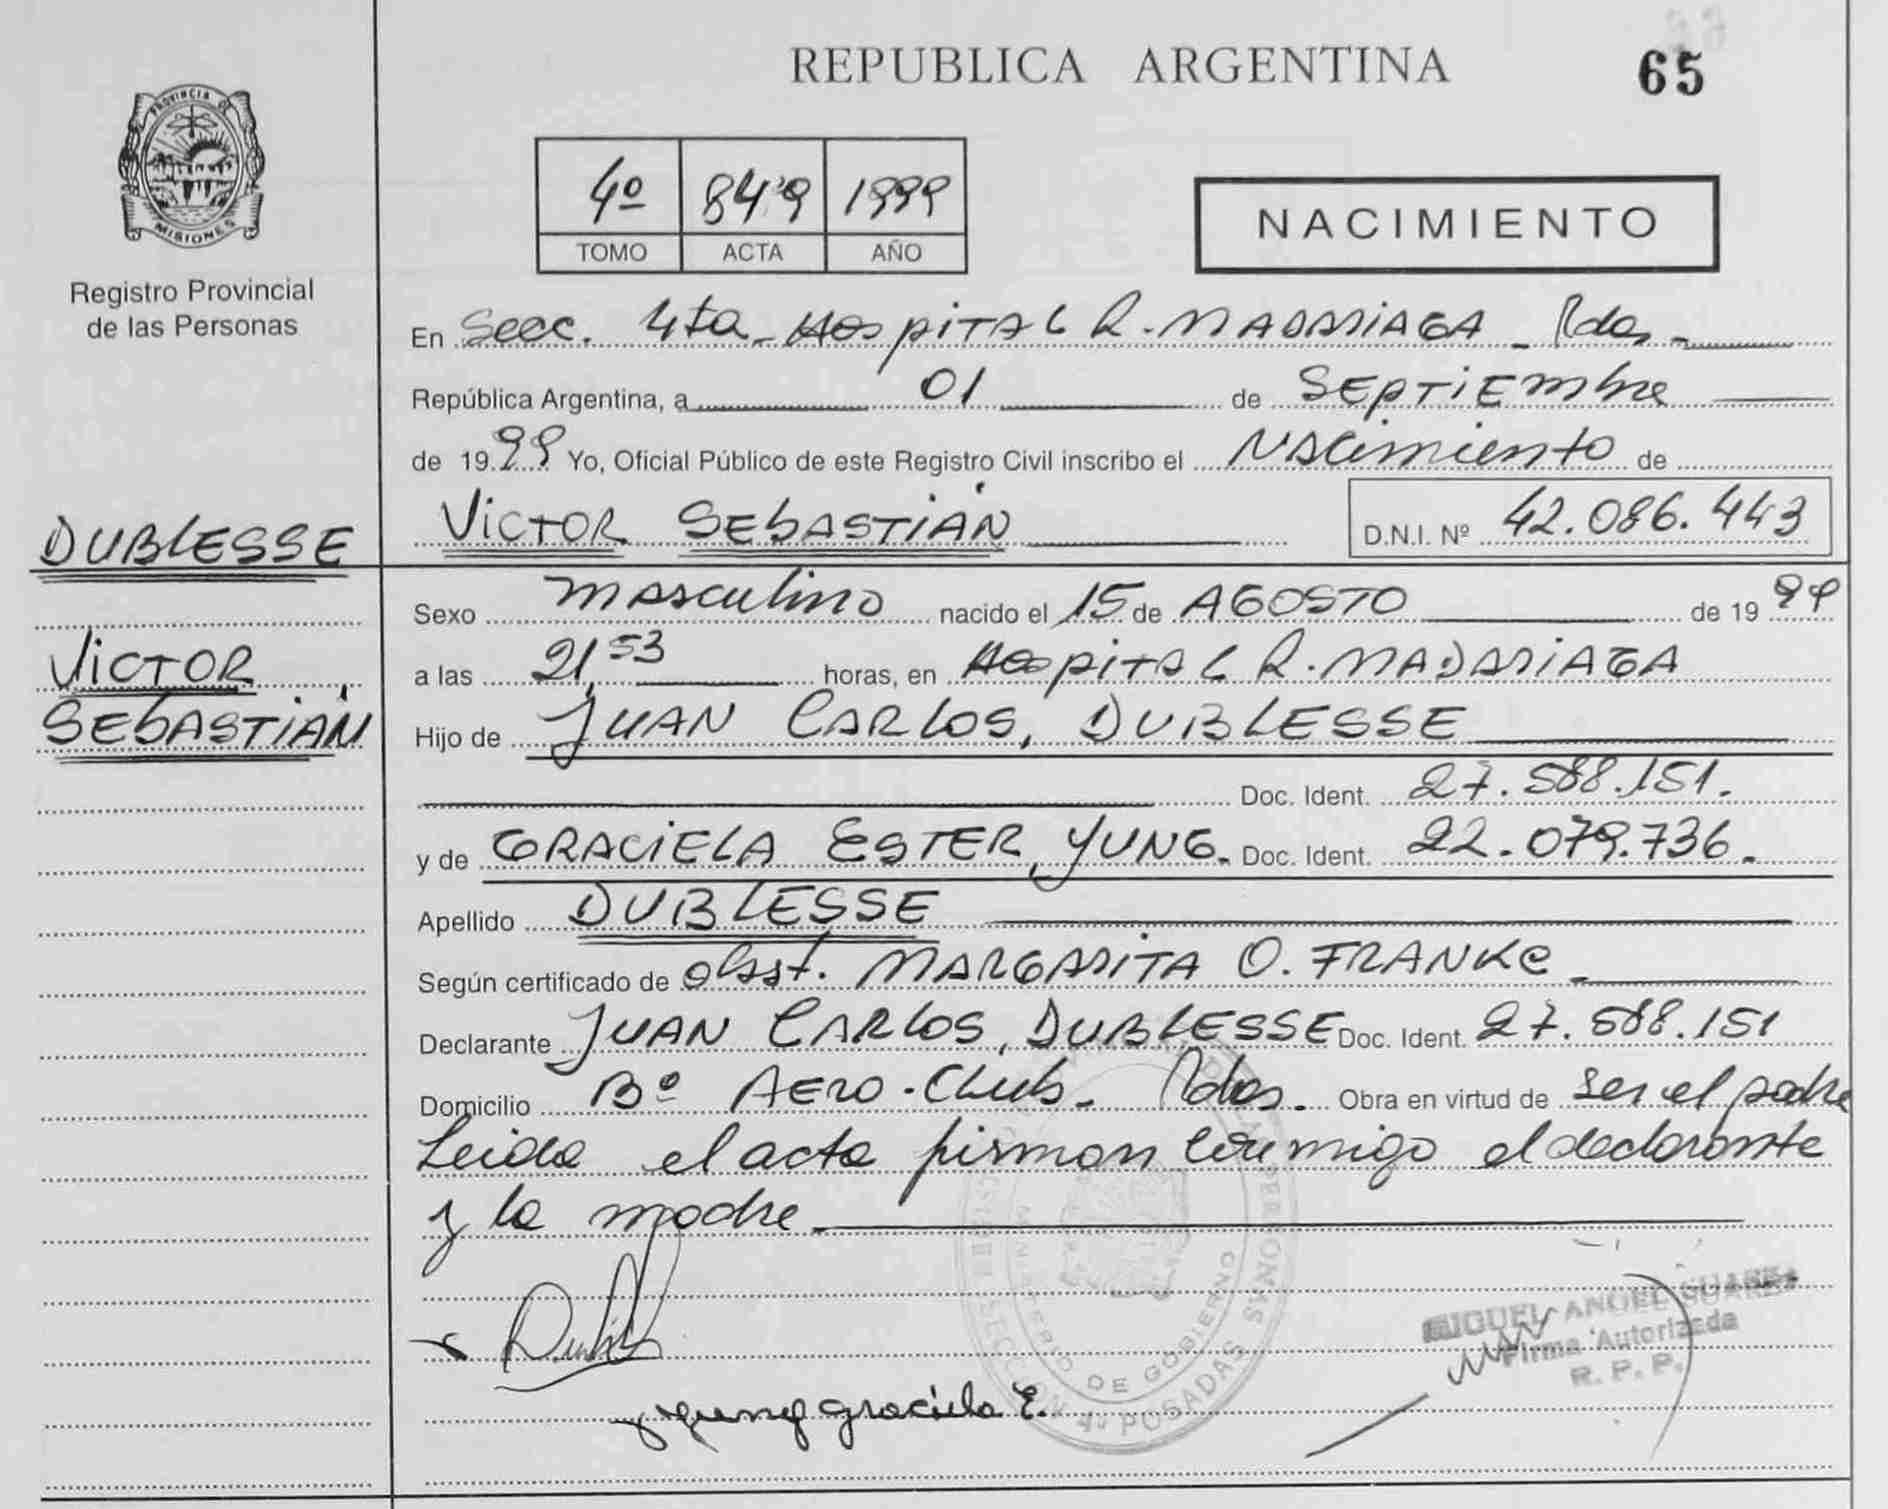 REPUBLICA ARGENTINA
65
PROVINCIA DE
MISIONES
Registro Provincial
de las Personas
4º 849 1999
TOMO ACTA AÑO
NACIMIENTO
En Secc. 4ta - HospiTAL R. MADARIAGA - Pdas -
República Argentina, a 01 de SEPTiEmbre
de 19 99 Yo, Oficial Público de este Registro Civil inscribo el NAcimiento de
VICTOR SEBASTIÁN D.N.I. Nº 42.086.443
DUBLESSE
VICTOR
SEBASTIÁN
Sexo mAsculino nacido el 15 de AGOSTO de 19 99
a las 21,53 horas, en HospiTAL R. MADARIAGA
Hijo de JUAN CARLOS, DUBLESSE
Doc. Ident. 27.588.151.
y de GRACIELA ESTER, YUNG. Doc. Ident. 22.079.736.
Apellido DUBLESSE
Según certificado de obst. MARGARITA O. FRANKE -
Declarante JUAN CARLOS, DUBLESSE Doc. Ident. 27.588.151
Domicilio Bº AERO-Club - Pdas. Obra en virtud de ser el padre
Leida el acta firman conmigo el declarante
y la madre
yung graciela E.
MIGUEL ANGEL SUAREZ
Firma Autorizada
R. P. P.
MINISTERIO DE GOBIERNO
SECCION 4ª POSADAS